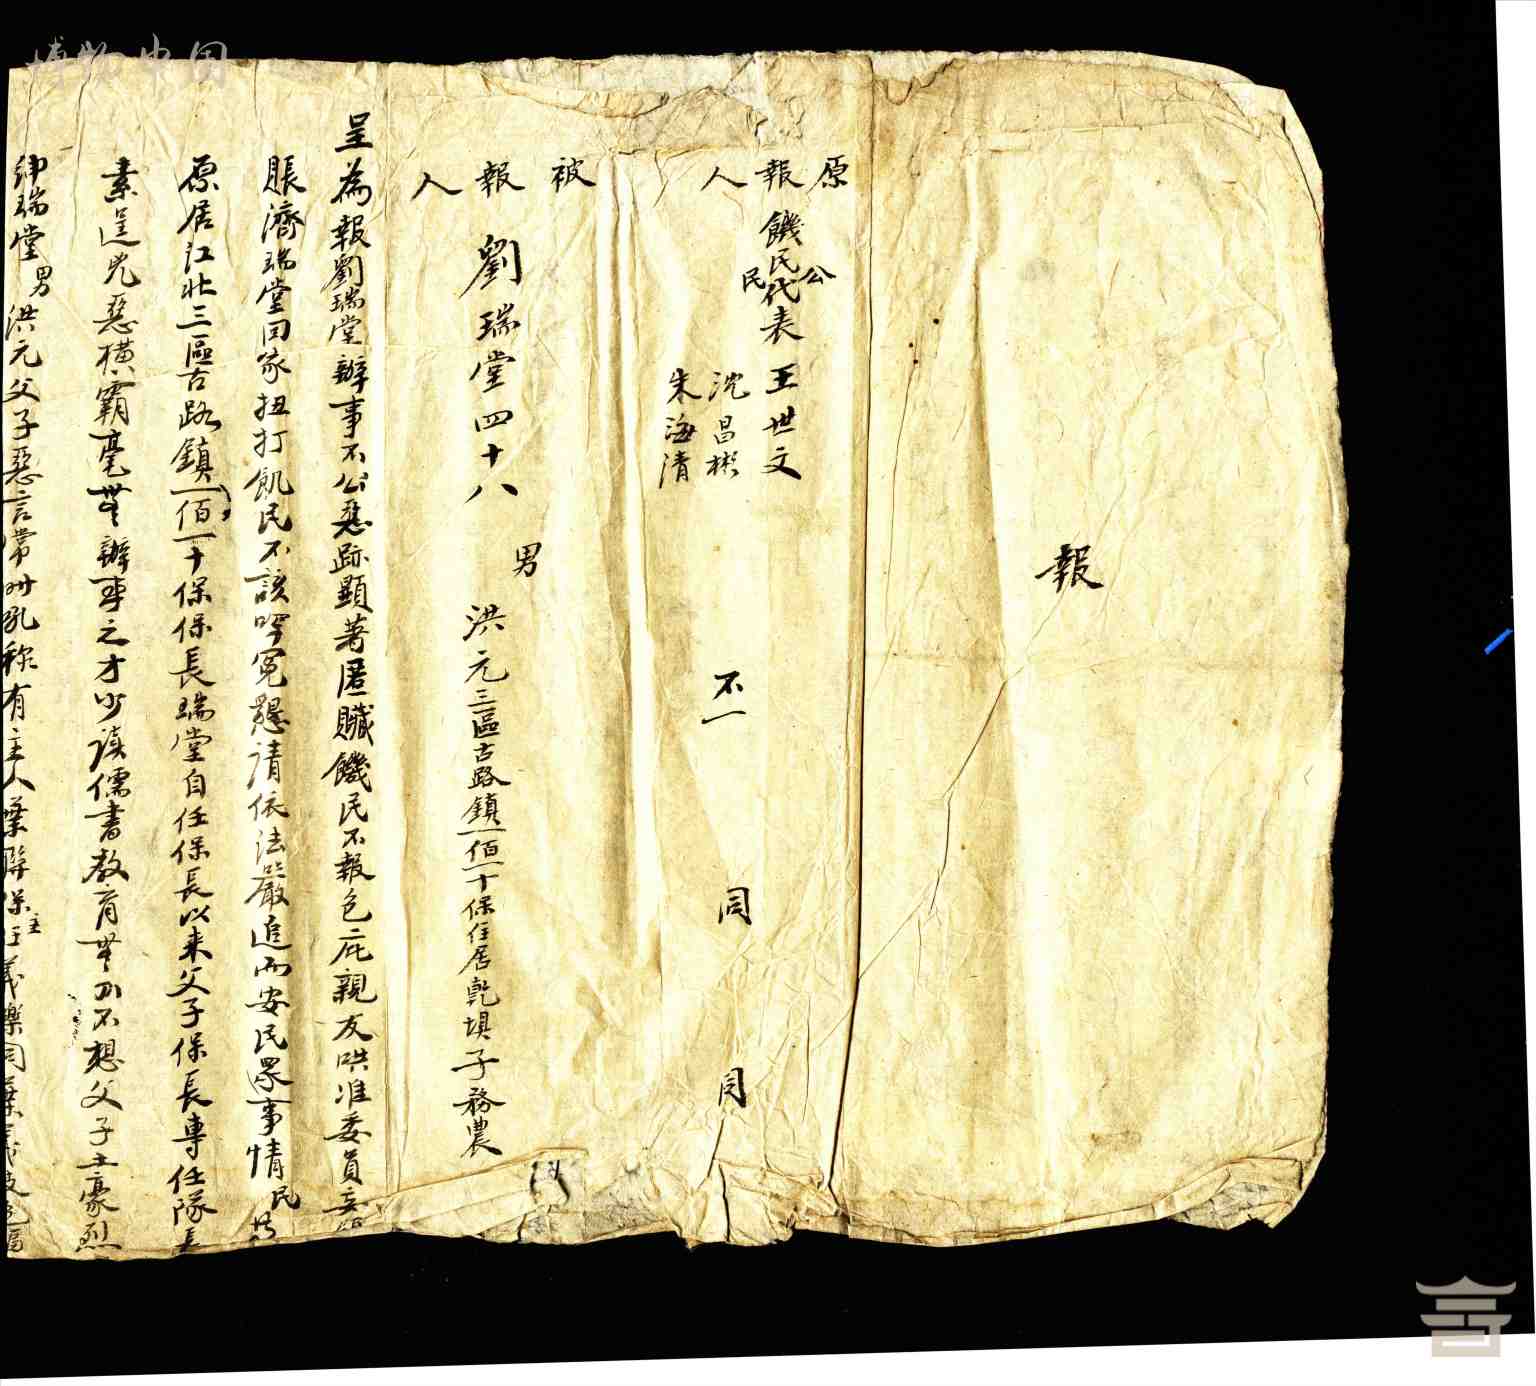 報
原報人 公民 饑民代表 王世文
沈昌彬
朱海清
不一 同 同
被報人 劉瑞堂 四十八 男 洪元 三區古路鎮一佰一十保住居乾埧子務農
呈為報劉瑞堂辦事不公惡跡顯著匿贓饑民不報包庇親友哄准委員
賬濟瑞堂回家扭打飢民不該呼冤懇請依法嚴追而安民眾事情民
原居江北三區古路鎮一佰一十保保長瑞堂自任保長以来父子保長專任隊長
素逞兇惡橫霸毫無辦事之才少讀儒書教育無不想父子土豪烈
紳瑞堂男洪元父子惡言常叫吼称有主人葉聯保主任義樂同葉
博物中国